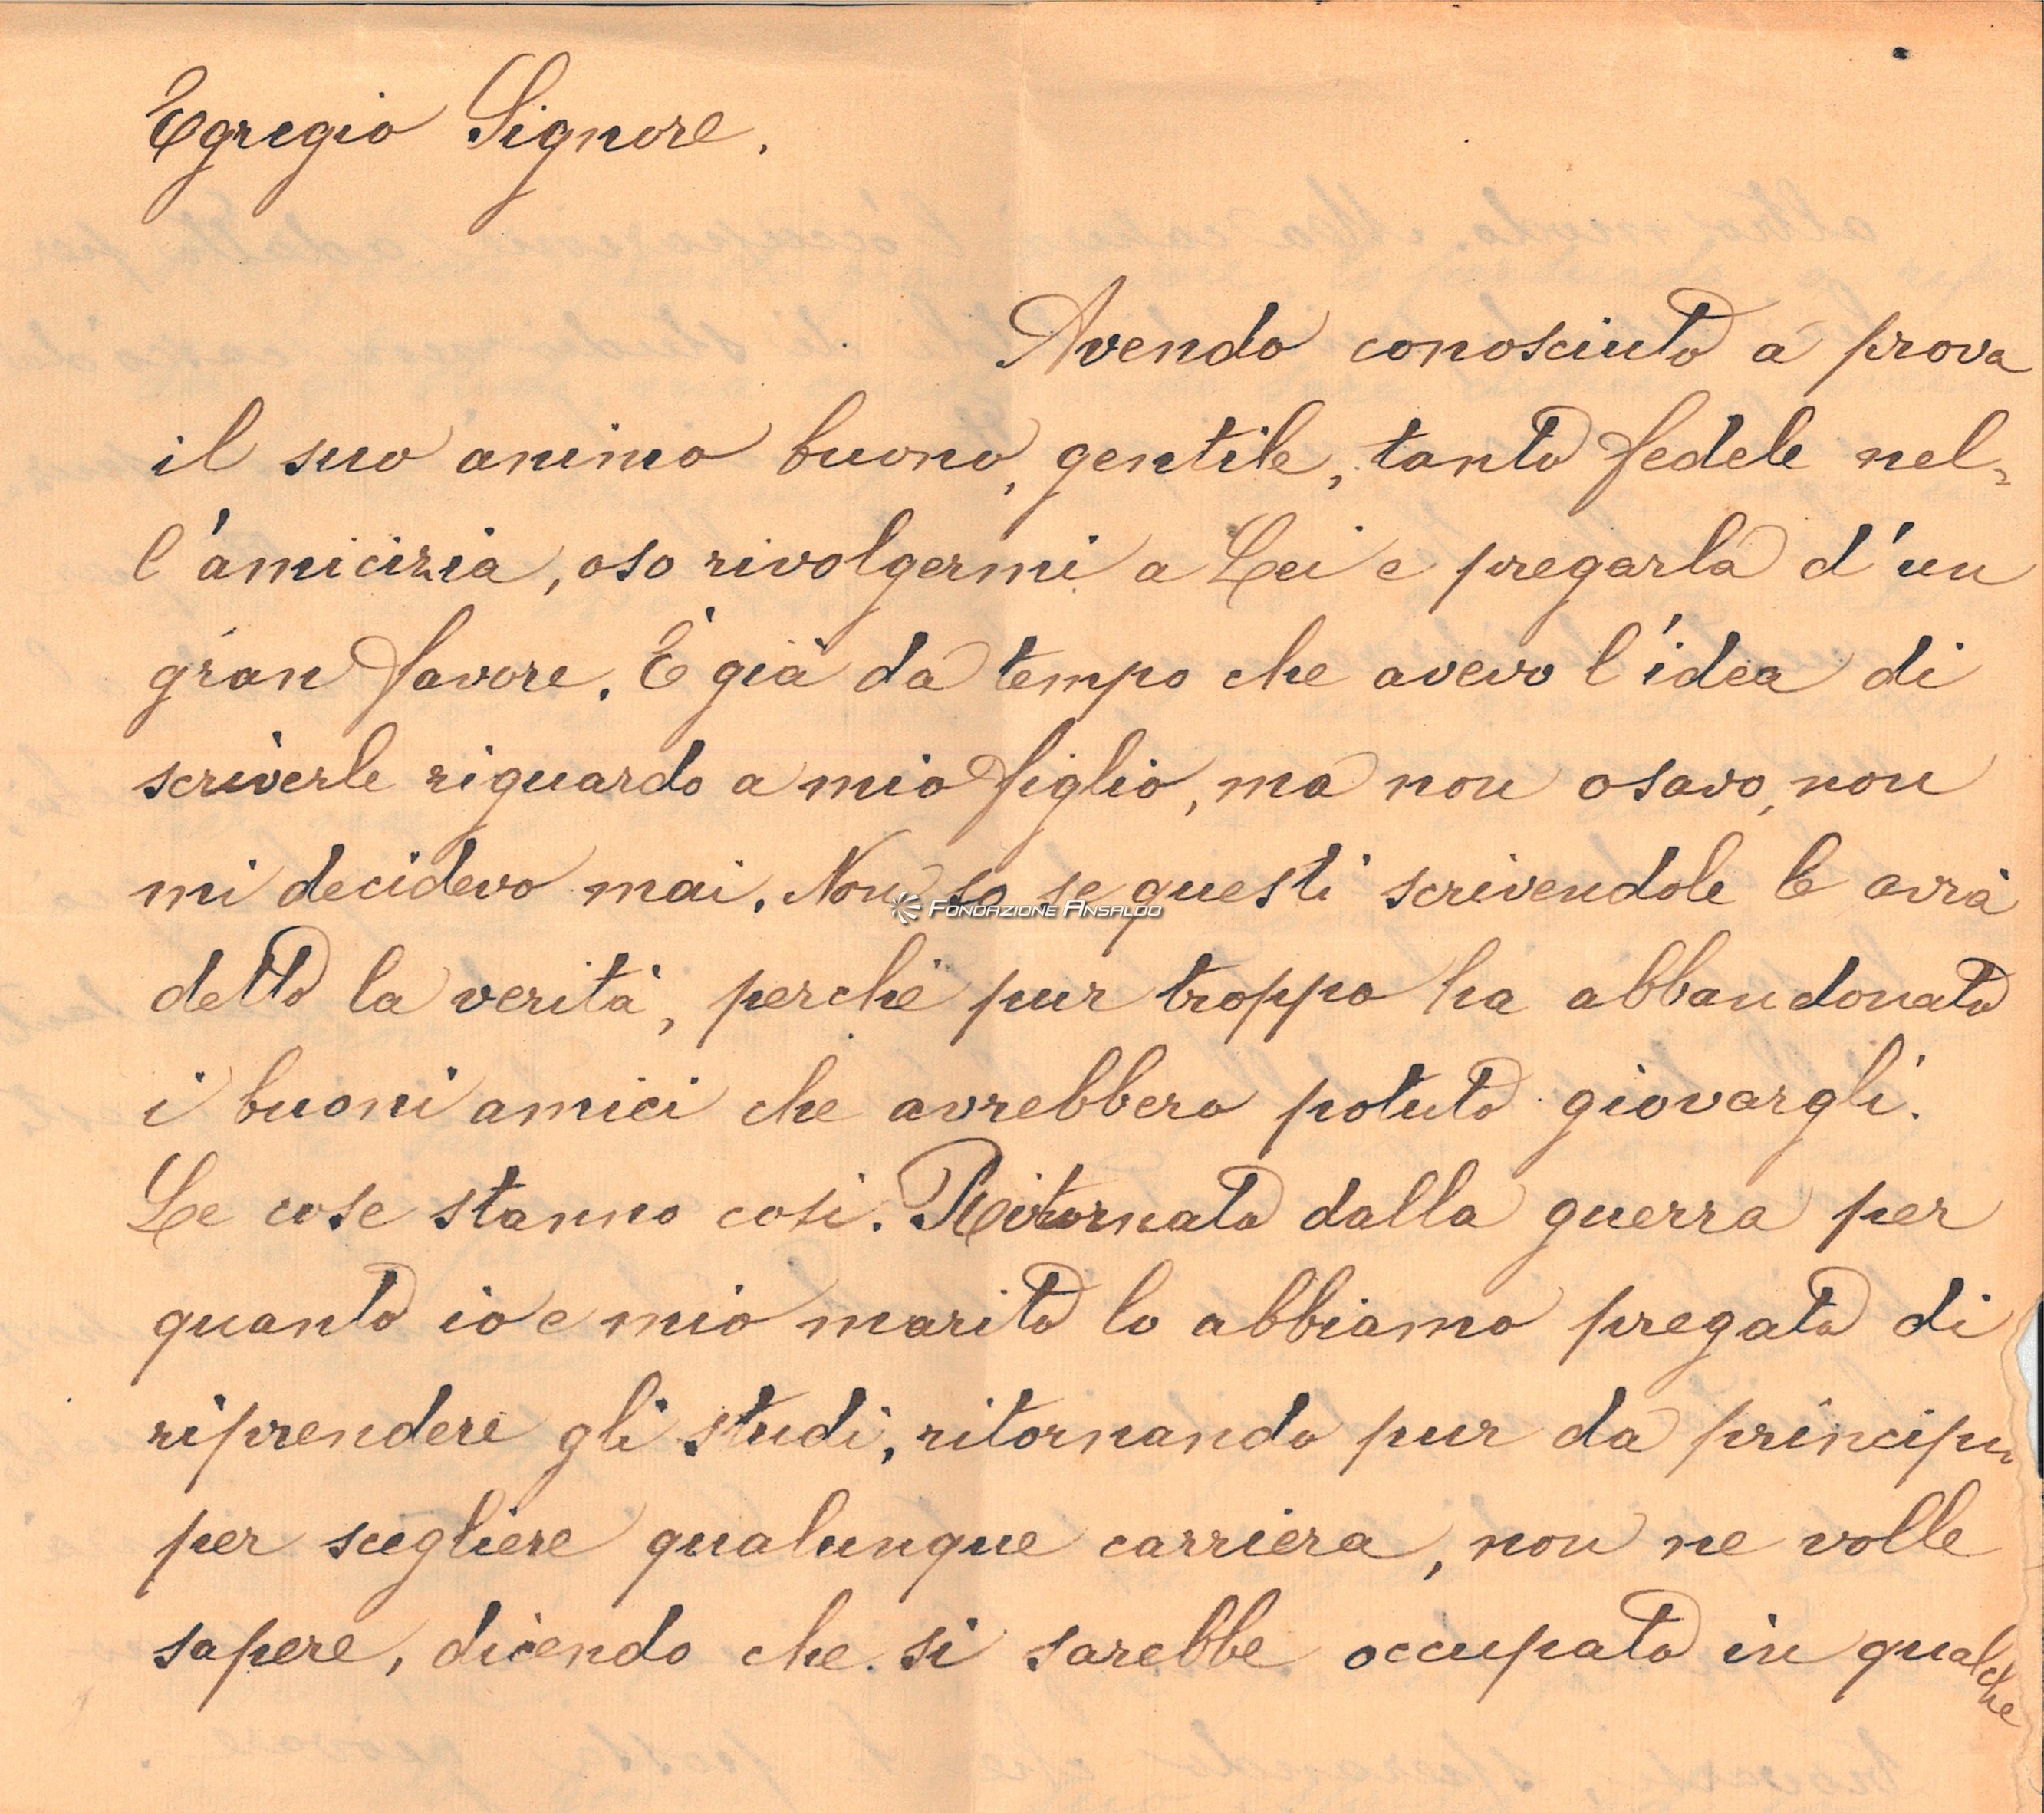 Egregio Signore.
Avendo conosciuto a prova
il suo animo buono, gentile, tanto fedele nel-
l'amicizia, oso rivolgermi a Lei e pregarla d'un
gran favore. È già da tempo che avevo l'idea di
scriverle riguardo a mio figlio, ma non osavo, non
mi decidevo mai. Non so se questi scrivendole le avrà
FONDAZIONE ANSALDO
detto la verità, perchè pur troppo ha abbandonato
i buoni amici che avrebbero potuto giovargli.
Le cose stanno così. Ritornato dalla guerra per
quanto io e mio marito lo abbiamo pregato di
riprendere gli studi, ritornando pur da principio
per scegliere qualunque carriera, non ne volle
sapere, dicendo che si sarebbe occupato in qualche